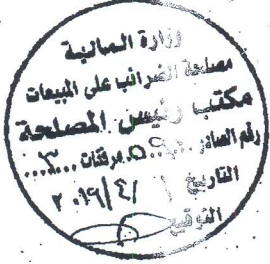 وزارة المالية
مصلحة الضرائب على المبيعات
مكتب رئيس المصلحة
رقم الصادر: مرفقات ...٣...
التاريخ / ٤/ ٢٠١٩
التوقيع